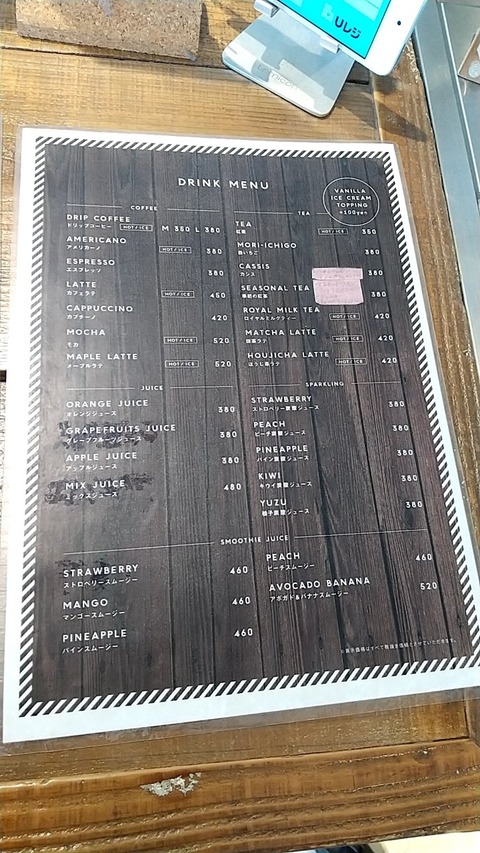 Uレジ
DRINK MENU
VANILLA
ICE CREAM
TOPPING
+100yen
COFFEE
DRIP COFFEE
ドリップコーヒー HOT / ICE M 350 L 380
AMERICANO
アメリカーノ HOT / ICE 380
ESPRESSO
エスプレッソ 380
LATTE
カフェラテ HOT / ICE 450
CAPPUCCINO
カプチーノ 420
MOCHA
モカ HOT / ICE 520
MAPLE LATTE
メープルラテ HOT / ICE 520
TEA
TEA
紅茶 HOT / ICE 350
MORI-ICHIGO
森いちご 380
CASSIS
カシス 380
SEASONAL TEA
季節の紅茶 380
ROYAL MILK TEA
ロイヤルミルクティー HOT / ICE 420
MATCHA LATTE
抹茶ラテ HOT / ICE 420
HOUJICHA LATTE
ほうじ茶ラテ HOT / ICE 420
JUICE
ORANGE JUICE
オレンジジュース 380
GRAPEFRUITS JUICE
グレープフルーツジュース 380
APPLE JUICE
アップルジュース 380
MIX JUICE
ミックスジュース 480
SPARKLING
STRAWBERRY
ストロベリー炭酸ジュース 380
PEACH
ピーチ炭酸ジュース 380
PINEAPPLE
パイン炭酸ジュース 380
KIWI
キウイ炭酸ジュース 380
YUZU
柚子炭酸ジュース 380
SMOOTHIE JUICE
STRAWBERRY
ストロベリースムージー 460
MANGO
マンゴースムージー 460
PINEAPPLE
パインスムージー 460
PEACH
ピーチスムージー 460
AVOCADO BANANA
アボガド&バナナスムージー 520
※表示価格はすべて税抜き価格とさせていただきます。